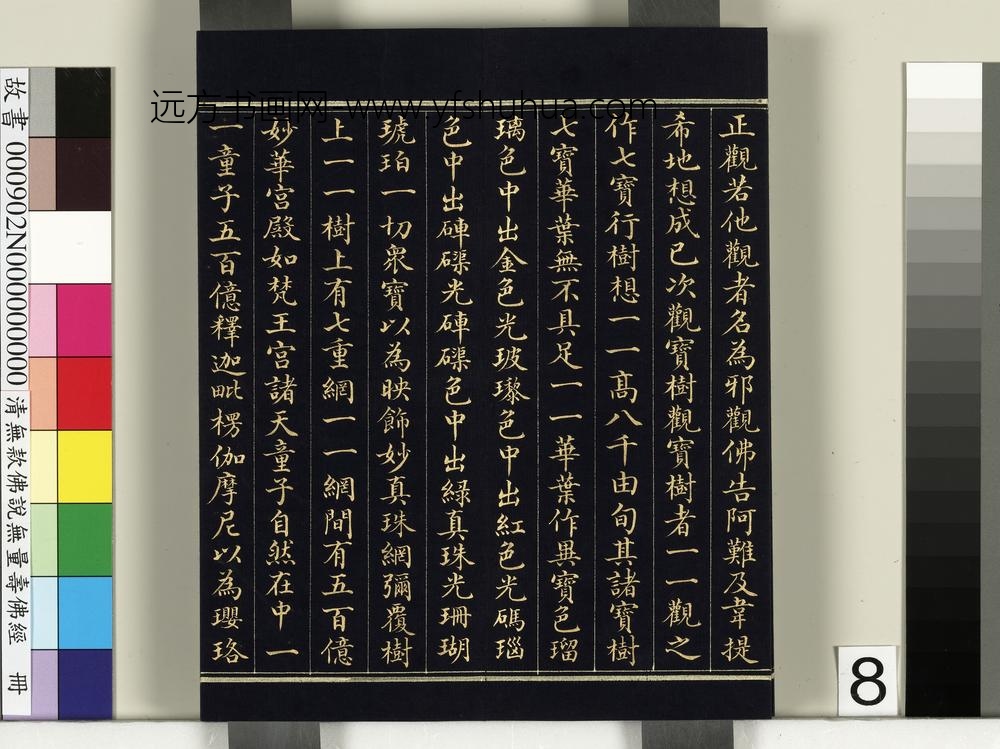 正觀若他觀者名為邪觀佛告阿難及韋提
希地想成已次觀寶樹觀寶樹者一一觀之
作七寶行樹想一一高八千由旬其諸寶樹
七寶華葉無不具足一一華葉作異寶色瑠
璃色中出金色光玻瓈色中出紅色光碼瑙
色中出硨磲光硨磲色中出綠真珠光珊瑚
琥珀一切眾寶以為映飾妙真珠網彌覆樹
上一一樹上有七重網一一網間有五百億
妙華宮殿如梵王宮諸天童子自然在中一
一童子五百億釋迦毗楞伽摩尼以為瓔珞
远方书画网 www.yfshuhua.com
故書 000902N000000000 清無款佛說無量壽佛經 冊
8